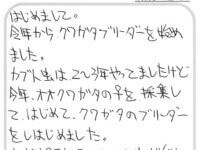 はじめまして。
今年から クワガタブリーダーを始め
ました。
カブト虫は 2〜3年やってましたけど
今年、オオクワガタの♀を 採集し
て、はじめて、クワガタのブリーダー
をしはじめました。